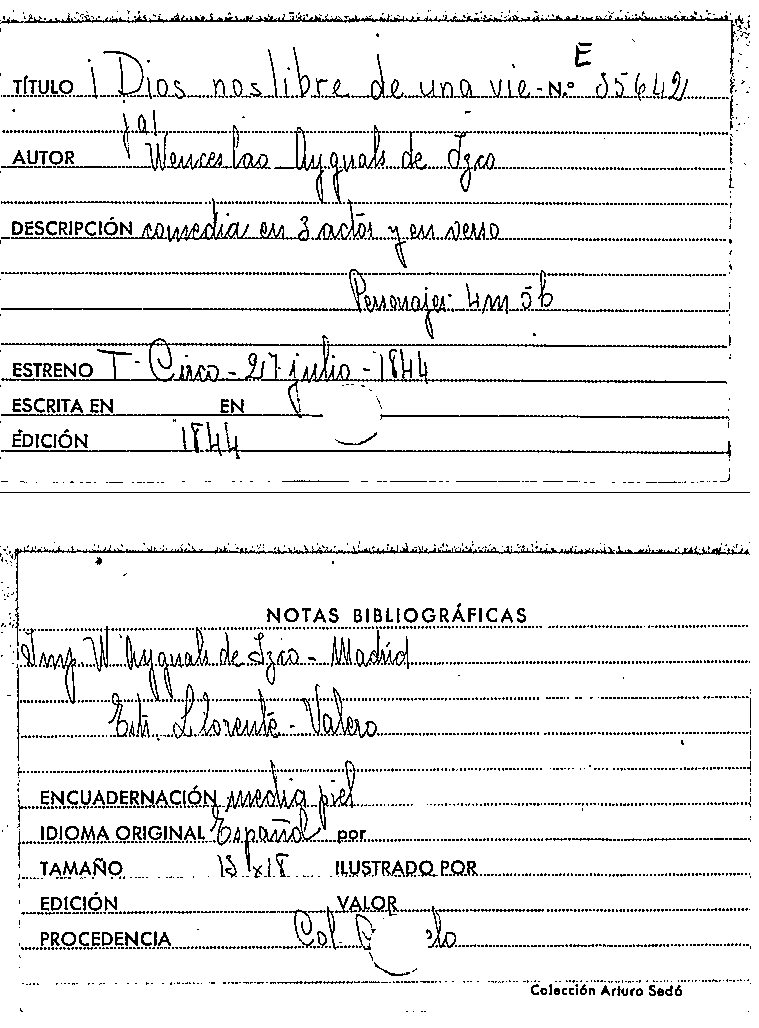 E
TÍTULO ¡Dios nos libre de una vie- N.º 35642
ja!
AUTOR Wenceslao Ayguals de Izco
DESCRIPCIÓN comedia en 3 actos y en verso
Personajes 4m 5h
ESTRENO T. Circo - 27 julio - 1844
ESCRITA EN EN
EDICIÓN 1844
NOTAS BIBLIOGRÁFICAS
Imp. W Ayguals de Izco - Madrid
Estr. Llorente - Valero
ENCUADERNACIÓN media piel
IDIOMA ORIGINAL Español por
TAMAÑO x18 ILUSTRADO POR
EDICIÓN VALOR
PROCEDENCIA Col.
Colección Arturo Sedó